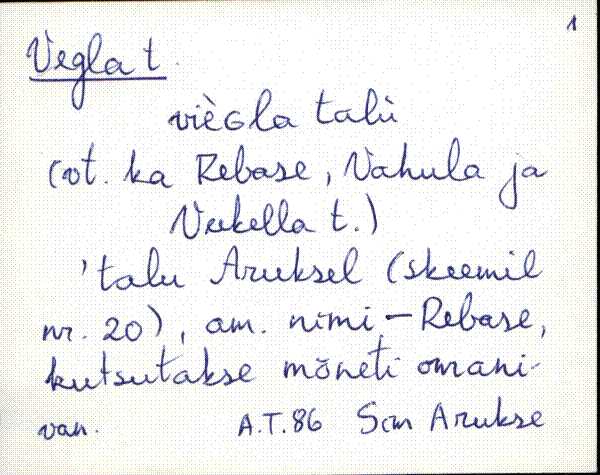 1
Vegla t.
vièGla talù
(vt. ka Rebase, Vahula ja
Veekella t.)
'talu Aruksel (skeemil
nr. 20), am. nimi – Rebase,
kutsutakse mõneti omani-
van. A.T.86 San Arukse